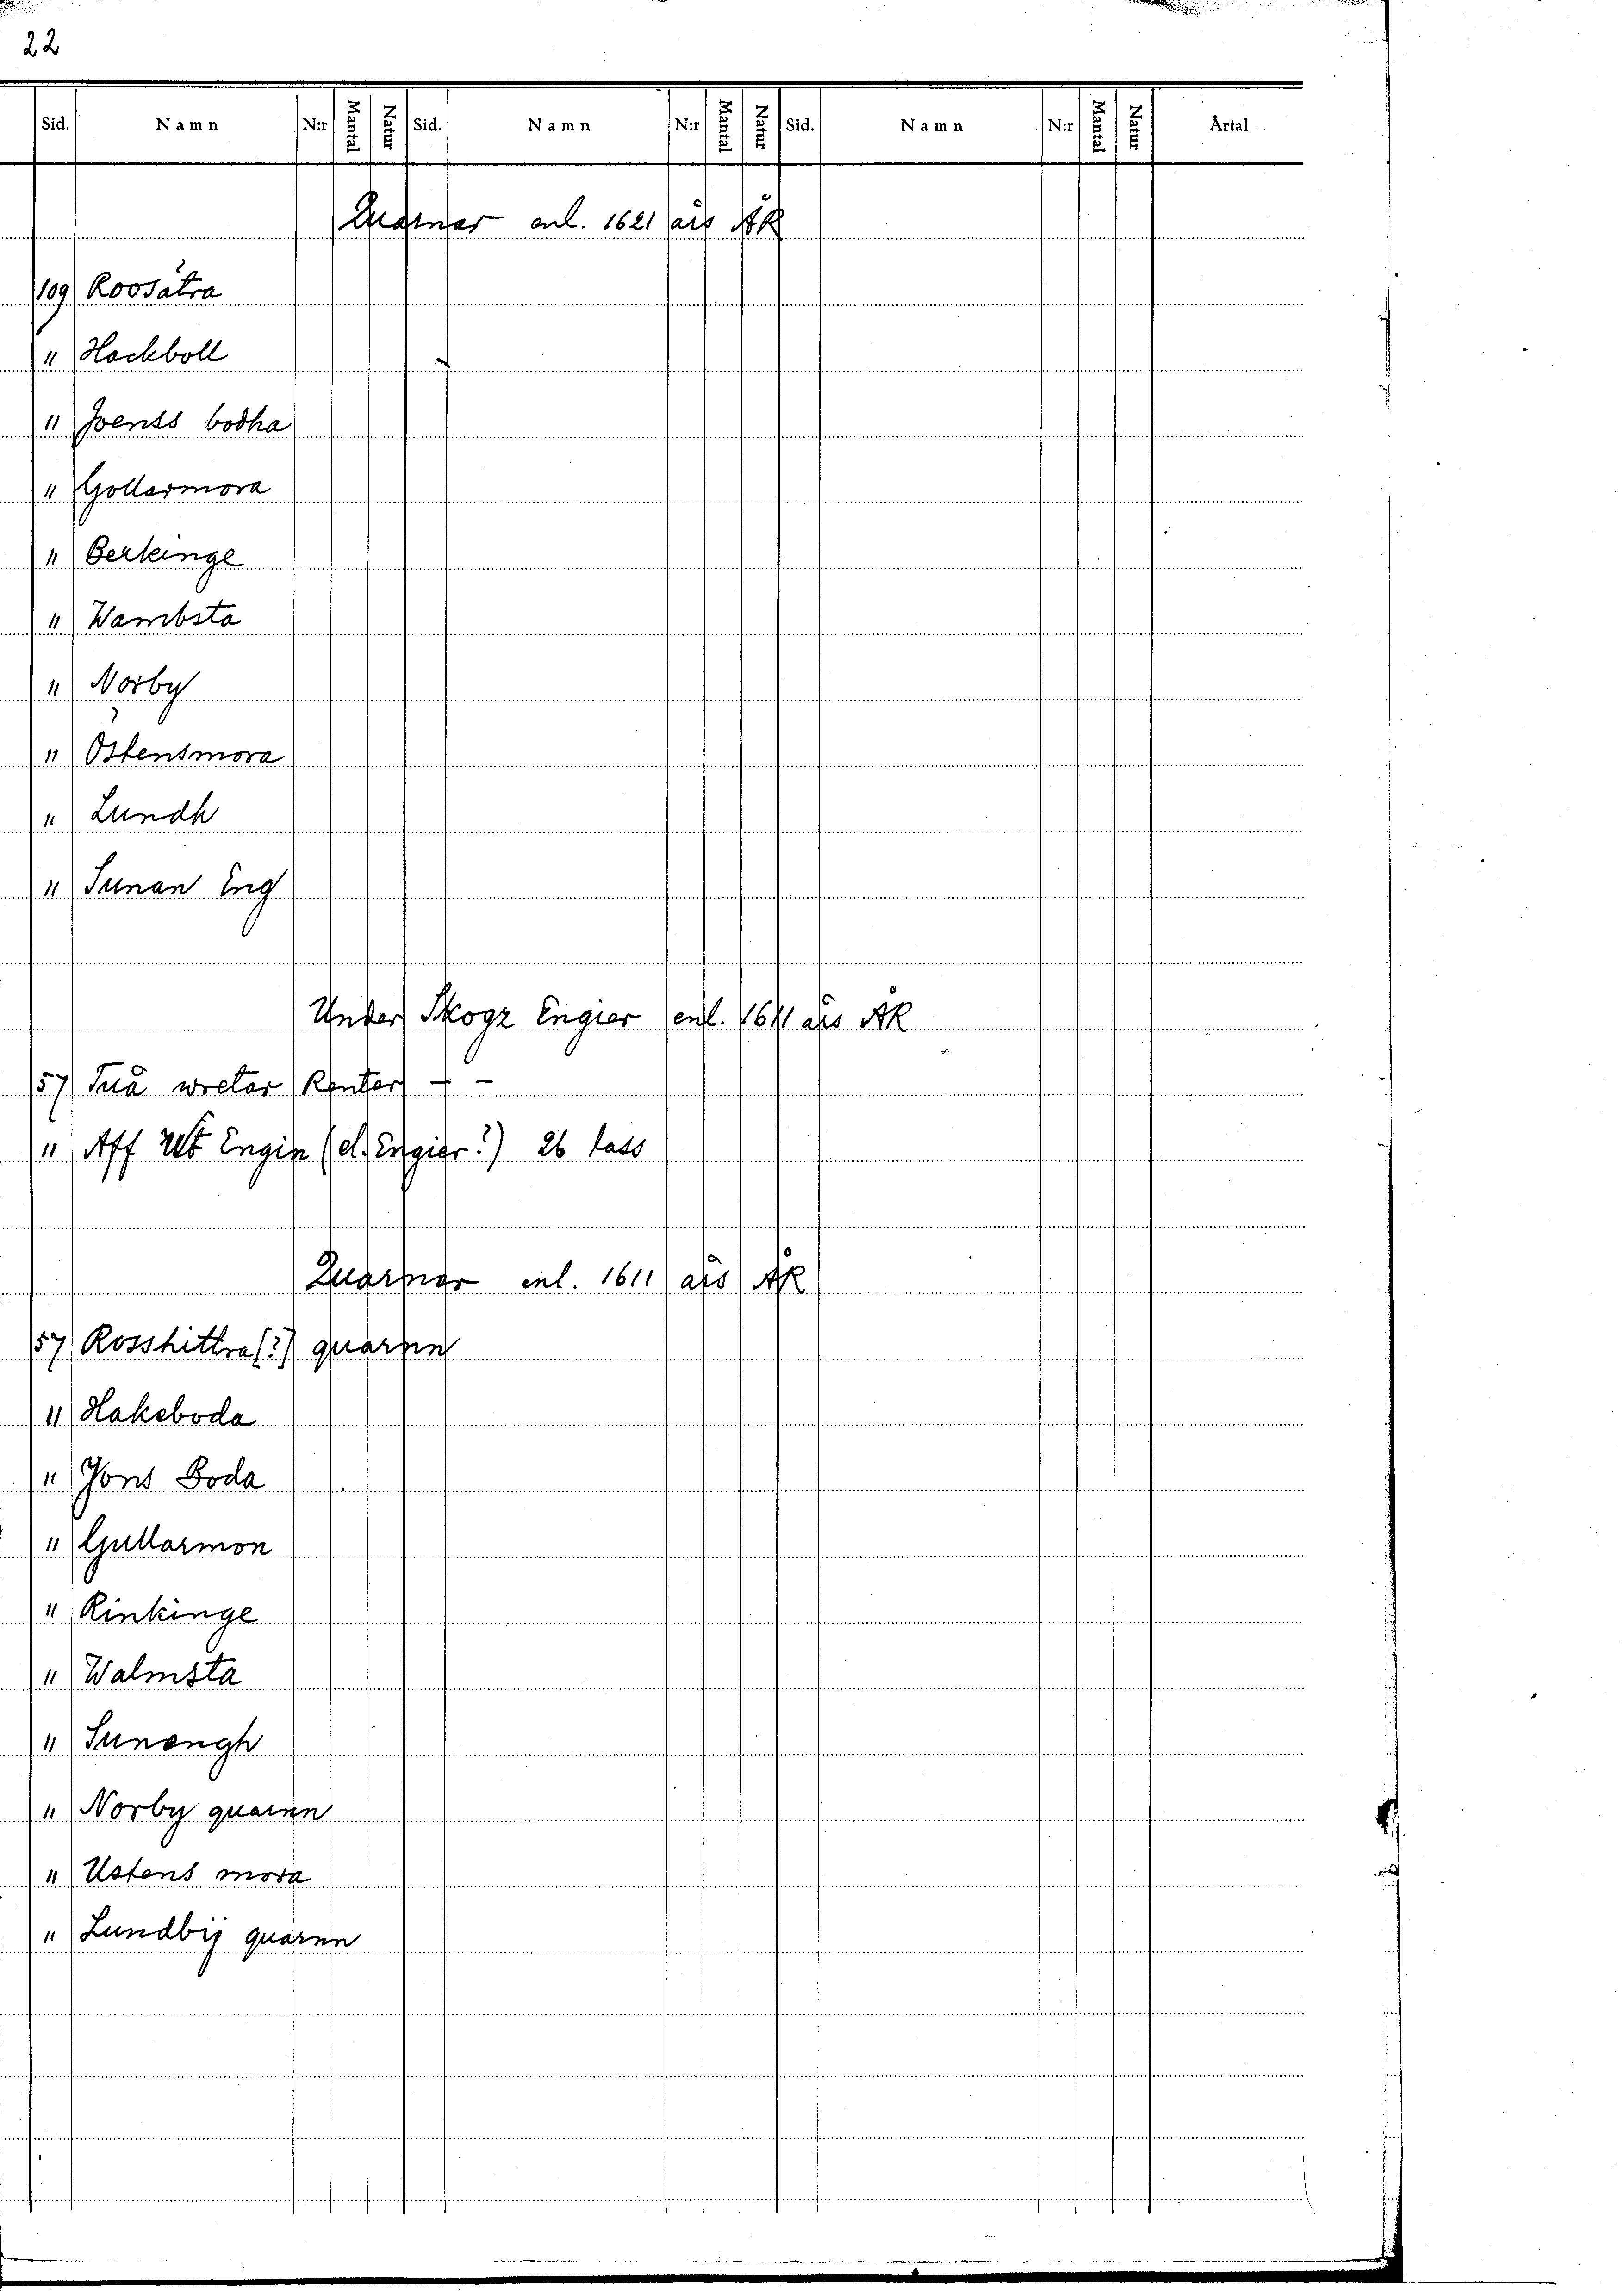 22
Sid. Namn N:r Mantal Natur Sid. Namn N:r Mantal Natur Sid. Namn N:r Mantal Natur Årtal
Quarnar enl. 1621 års ÅR
109 Roosätra
" Hackboll
" Joenss bodha
" Gollarmora
" Berkinge
" Wambsta
" Norby
" Östensmora
" Lundh
" Sunan Eng
Under Skogz Engier enl. 1611 års ÅR
57 Tuå wretar Renter — —
" Aff Utt Engin (el. Engier?) 26 lass
Quarnar enl. 1611 års ÅR
57 Rosshittra(?) quarnn
" Hakeboda
" Jons Boda
" Gullarmon
" Rinkinge
" Walmsta
" Sunengh
" Norby quarnn
" Ustens mora
" Lundbij quarnn